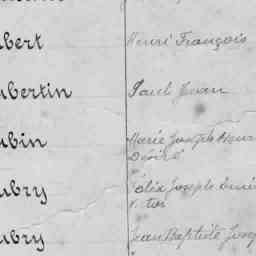 ubert Henri François
ubertin Paul Jean
ubin Marie Joseph Henri
Désiré
ubry Félix Joseph
Victor
ubry Jean Baptiste Josep